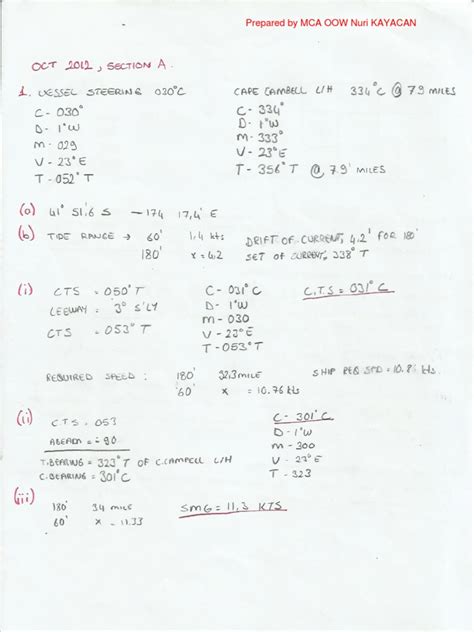 Prepared by MCA OOW Nuri KAYACAN
OCT 2012, SECTION A.
1. VESSEL STEERING 030°C
C - 030°
D - 1°W
M - 029
V - 23°E
T - 052° T
CAPE CAMBELL L/H 334°C @ 7.9 MILES
C - 334°
D - 1°W
M - 333°
V - 23°E
T - 356° T @ 7.9' MILES
(a) 41° 51,6 S - 174 17,4' E
(b) TIDE RANGE → 60' 1,4 kts
180' x = 4.2
DRIFT OF CURRENT, 4.2' FOR 180'
SET OF CURRENT, 338° T
(i) CTS = 050° T
LEEWAY = 3° S'LY
CTS = 053° T
C - 031° C
D - 1°W
M - 030
V - 23°E
T - 053° T
C.T.S = 031° C
REQUIRED SPEED : 180' 32.3 mile
60' x = 10.76 kts
SHIP REQ SPD = 10.8 kts.
(ii) C.T.S - 053
ABEAM = - 90
T.BEARING = 323° T OF C.CAMPELL L/H
C.BEARING = 301° C
C - 301° C
D - 1°W
M - 300
V - 23°E
T - 323
(iii) 180' 34 mile
60' x = 11.33
SMG = 11,3 KTS